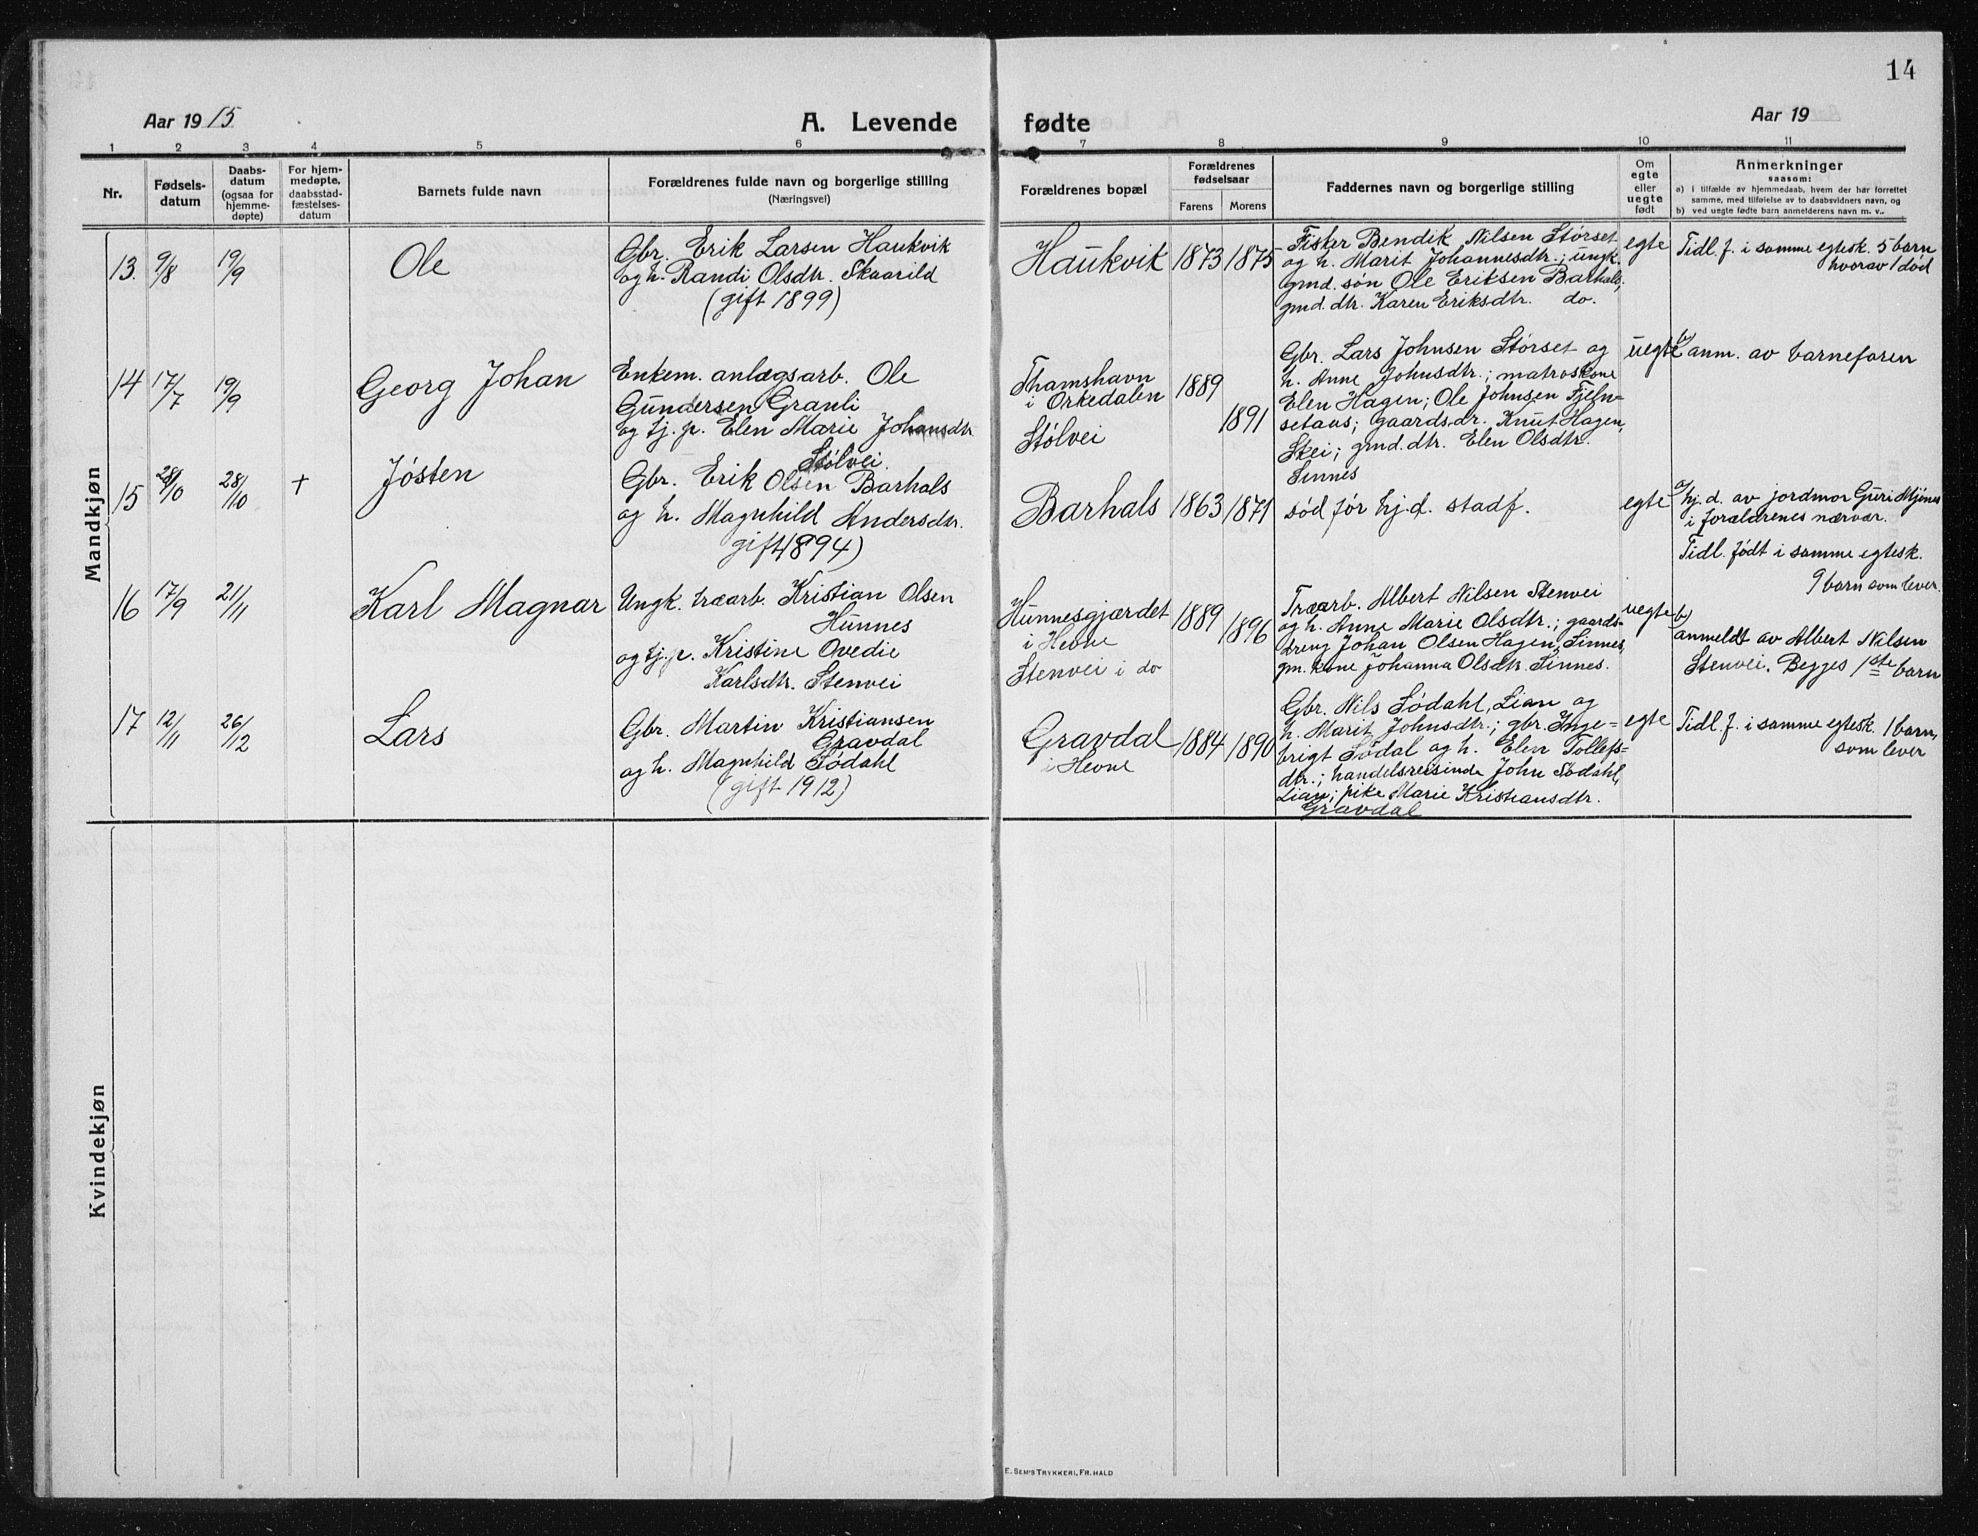 14
Aar 1915
A. Levende
fødte
Aar 19
1 2 3 4 5 6 7 8 9 10 11
Nr.
Fødsels-
datum
Daabs-
datum
(ogsaa for
hjemme-
døpte)
For hjem-
medøpte,
daabsstad-
fæstelses-
datum
Barnets fulde navn
Forældrenes fulde navn og borgerlige stilling
(Næringsvei)
Forældrenes bopæl
Forældrenes
fødselsaar
Farens Morens
Faddernes navn og borgerlige stilling
Om
egte
eller
uegte
født
Anmerkninger
saasom:
a) i tilfælde av hjemmedaab, hvem der har forrettet
samme, med tilføielse av to daabsvidners navn, og
b) ved uegte fødte barn anmelderens navn m. v..
Mandkjøn
13. 9/8 19/9
Ole
Gbr. Erik Larsen Haukvik
og h. Randi Olsdtr. Skaarild
(gift 1899)
Haukvik 1873 1875
Fisker Bendik Nilsen Størset
og h. Marit Johannesdtr.; ungk.
gmd. søn Ole Eriksen Barhals;
gmd. dtr. Karen Eriksdtr. do.
egte
Tidl. f. i samme egtesk. 5 barn
hvorav 1 død
14 17/7 19/9
Georg Johan
Enkem. anlægsarb. Ole
Gundersen Granli
og tj. p. Elen Marie Johansdtr.
Stølvei.
Thamshavn
i Orkedalen
Stølvei
1889
1891
Gbr. Lars Johnsen Størset og
h. Anne Johnsdtr.; matroskone
Elen Hagen; Ole Johnsen Fjeln-
setaas; gaardsdr. Knut Hagen,
Skei; gmd. dtr. Elen Olsdtr.
Sinnes
uegte
b) anm. av barnefaren
15 28/10 28/10 +
Jøsten
Gbr. Erik Olsen Barhals
og h. Magnhild Andersdtr.
gift 1894)
Barhals 1863 1871
død før hj.d. stadf.
egte
a) hj. d. av jordmor Guri Mjønes
i forældrenes nærvær.
Tidl. født i samme egtesk.
9 barn som lever.
16 17/9 21/11
Karl Magnar
Ungk. træarb. Kristian Olsen
Hunnes
og tj. p. Kristine Ovedie
Karlsdtr. Stenvei
Hunnesgjærdet
i Hevne
Stenvei i do
1889
1896
Træarb. Albert Nilsen Stenvei
og h. Anne Marie Olsdtr.; gaards-
dreng Johan Olsen Hagen, Sinnes,
gm. kone Johanna Olsdtr. Sinnes.
uegte
b)
anmeldt av Albert Nilsen
Stenvei. Begges 1ste barn
17 12/11 26/12
Lars
Gbr. Martin Kristiansen
Gravdal
og h. Magnhild Sødahl
(gift 1912)
Gravdal
i Hevne
1884 1890
Gbr. Nils Sødahl, Lian og
h. Marit Johnsdtr.; gbr. Inge-
brigt Sødal og h. Elen Tollefs-
dtr.; handelsreisinde John Sødahl,
Lian; pike Marie Kristiansdtr.
Gravdal
egte
Tidl. f. i samme egtesk. 1 barn,
som lever
Kvindekjøn
E. SEM'S TRYKKERI, FR. HALD